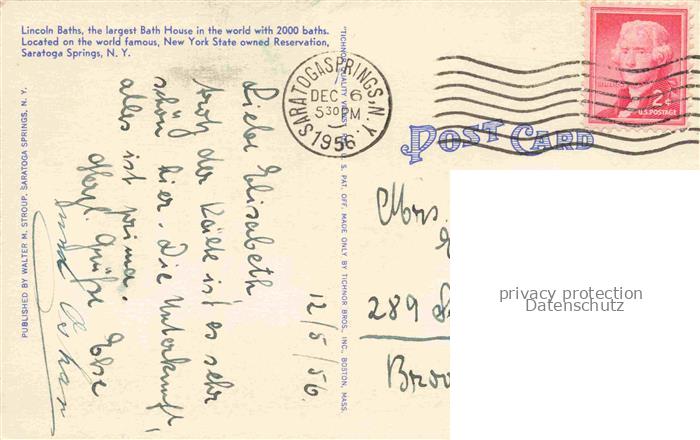 Lincoln Baths, the largest Bath House in the world with 2000 baths.
Located on the world famous, New York State owned Reservation,
Saratoga Springs, N. Y.
PUBLISHED BY WALTER M. STROUP, SARATOGA SPRINGS, N. Y.
12/5/56.
Liebe Elisabeth,
trotz der Kälte ist es sehr
schön hier. Die Unterkunft,
alles ist prima.
Herzl. Grüße Else
und Oskar
"TICHNOR QUALITY VIEWS," REG. U. S. PAT. OFF. MADE ONLY BY TICHNOR BROS., INC., BOSTON, MASS.
SARATOGA SPRINGS, N.Y.
DEC 6
530 PM
1956
2¢
U.S. POSTAGE
POST CARD
Mrs.
289
Broo
privacy protection
Datenschutz